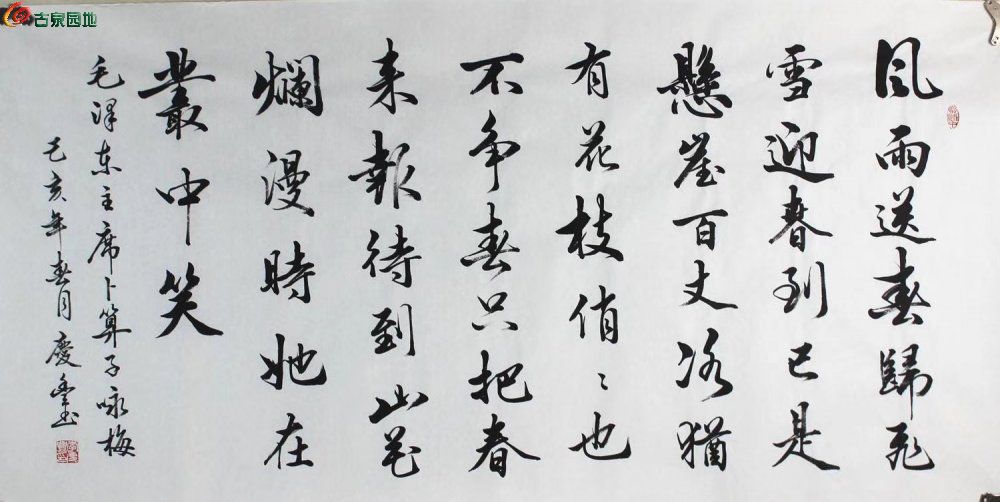 古泉园地
風雨送春歸飛
雪迎春到已是
懸崖百丈冰猶
有花枝俏〻也
不争春只把春
来報待到山花
爛漫時她在
叢中笑
毛澤东主席卜算子咏梅
己亥年春月慶